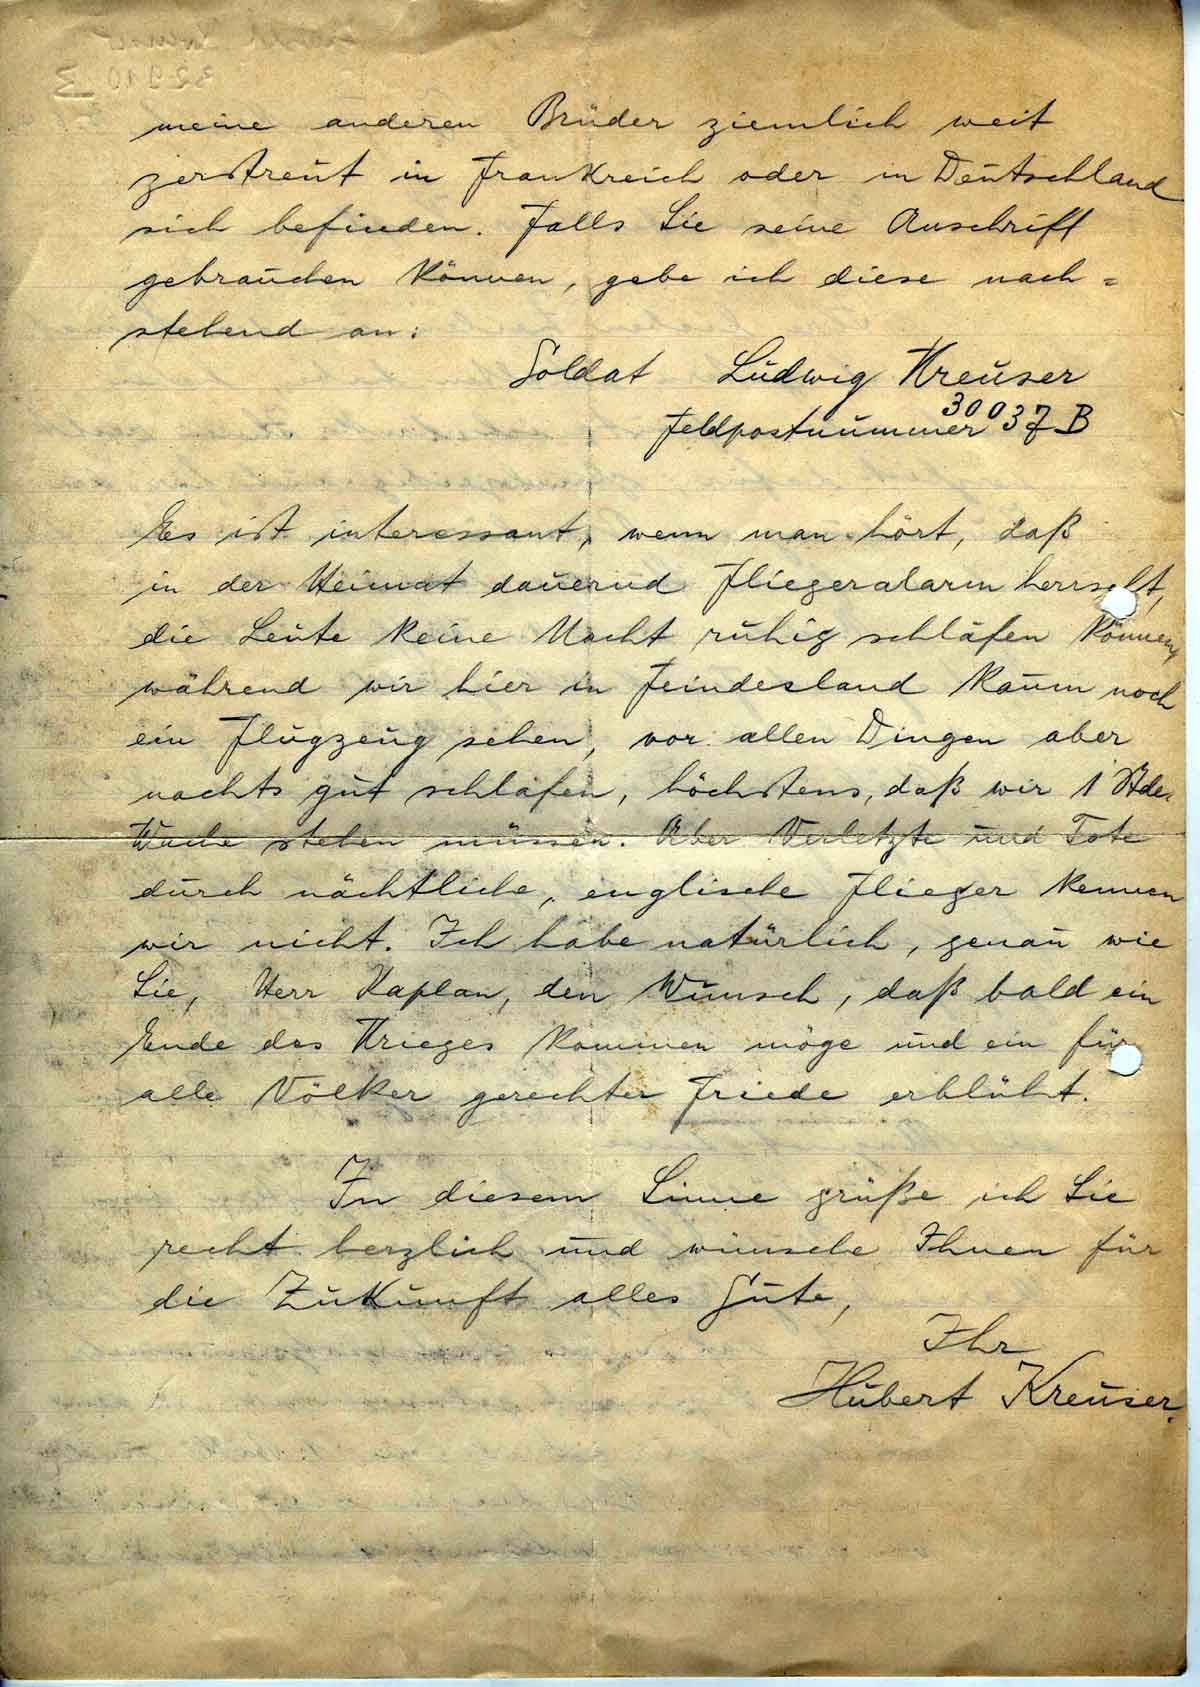 meine anderen Brüder ziemlich weit
zerstreut in Frankreich oder in Deutschland
sich befinden. Falls Sie seine Anschrift
gebrauchen können, gebe ich diese nach=
stehend an:
Soldat Ludwig Kreuser
Feldpostnummer 30037 B
Es ist interessant, wenn man hört, daß
in der Heimat dauernd Fliegeralarm herrscht,
die Leute keine Nacht ruhig schlafen können,
während wir hier in Feindesland kaum noch
ein Flugzeug sehen, vor allen Dingen aber
nachts gut schlafen, höchstens, daß wir 1 Stde.
Wache stehen müssen. Aber Verletzte und Tote
durch nächtliche, englische Flieger kennen
wir nicht. Ich habe natürlich, genau wie
Sie, Herr Kaplan, den Wunsch, daß bald ein
Ende des Krieges kommen möge und ein für
alle Völker gerechter Friede erblüht.
In diesem Sinne grüße ich Sie
recht herzlich und wünsche Ihnen für
die Zukunft alles Gute,
Ihr
Hubert Kreuser.